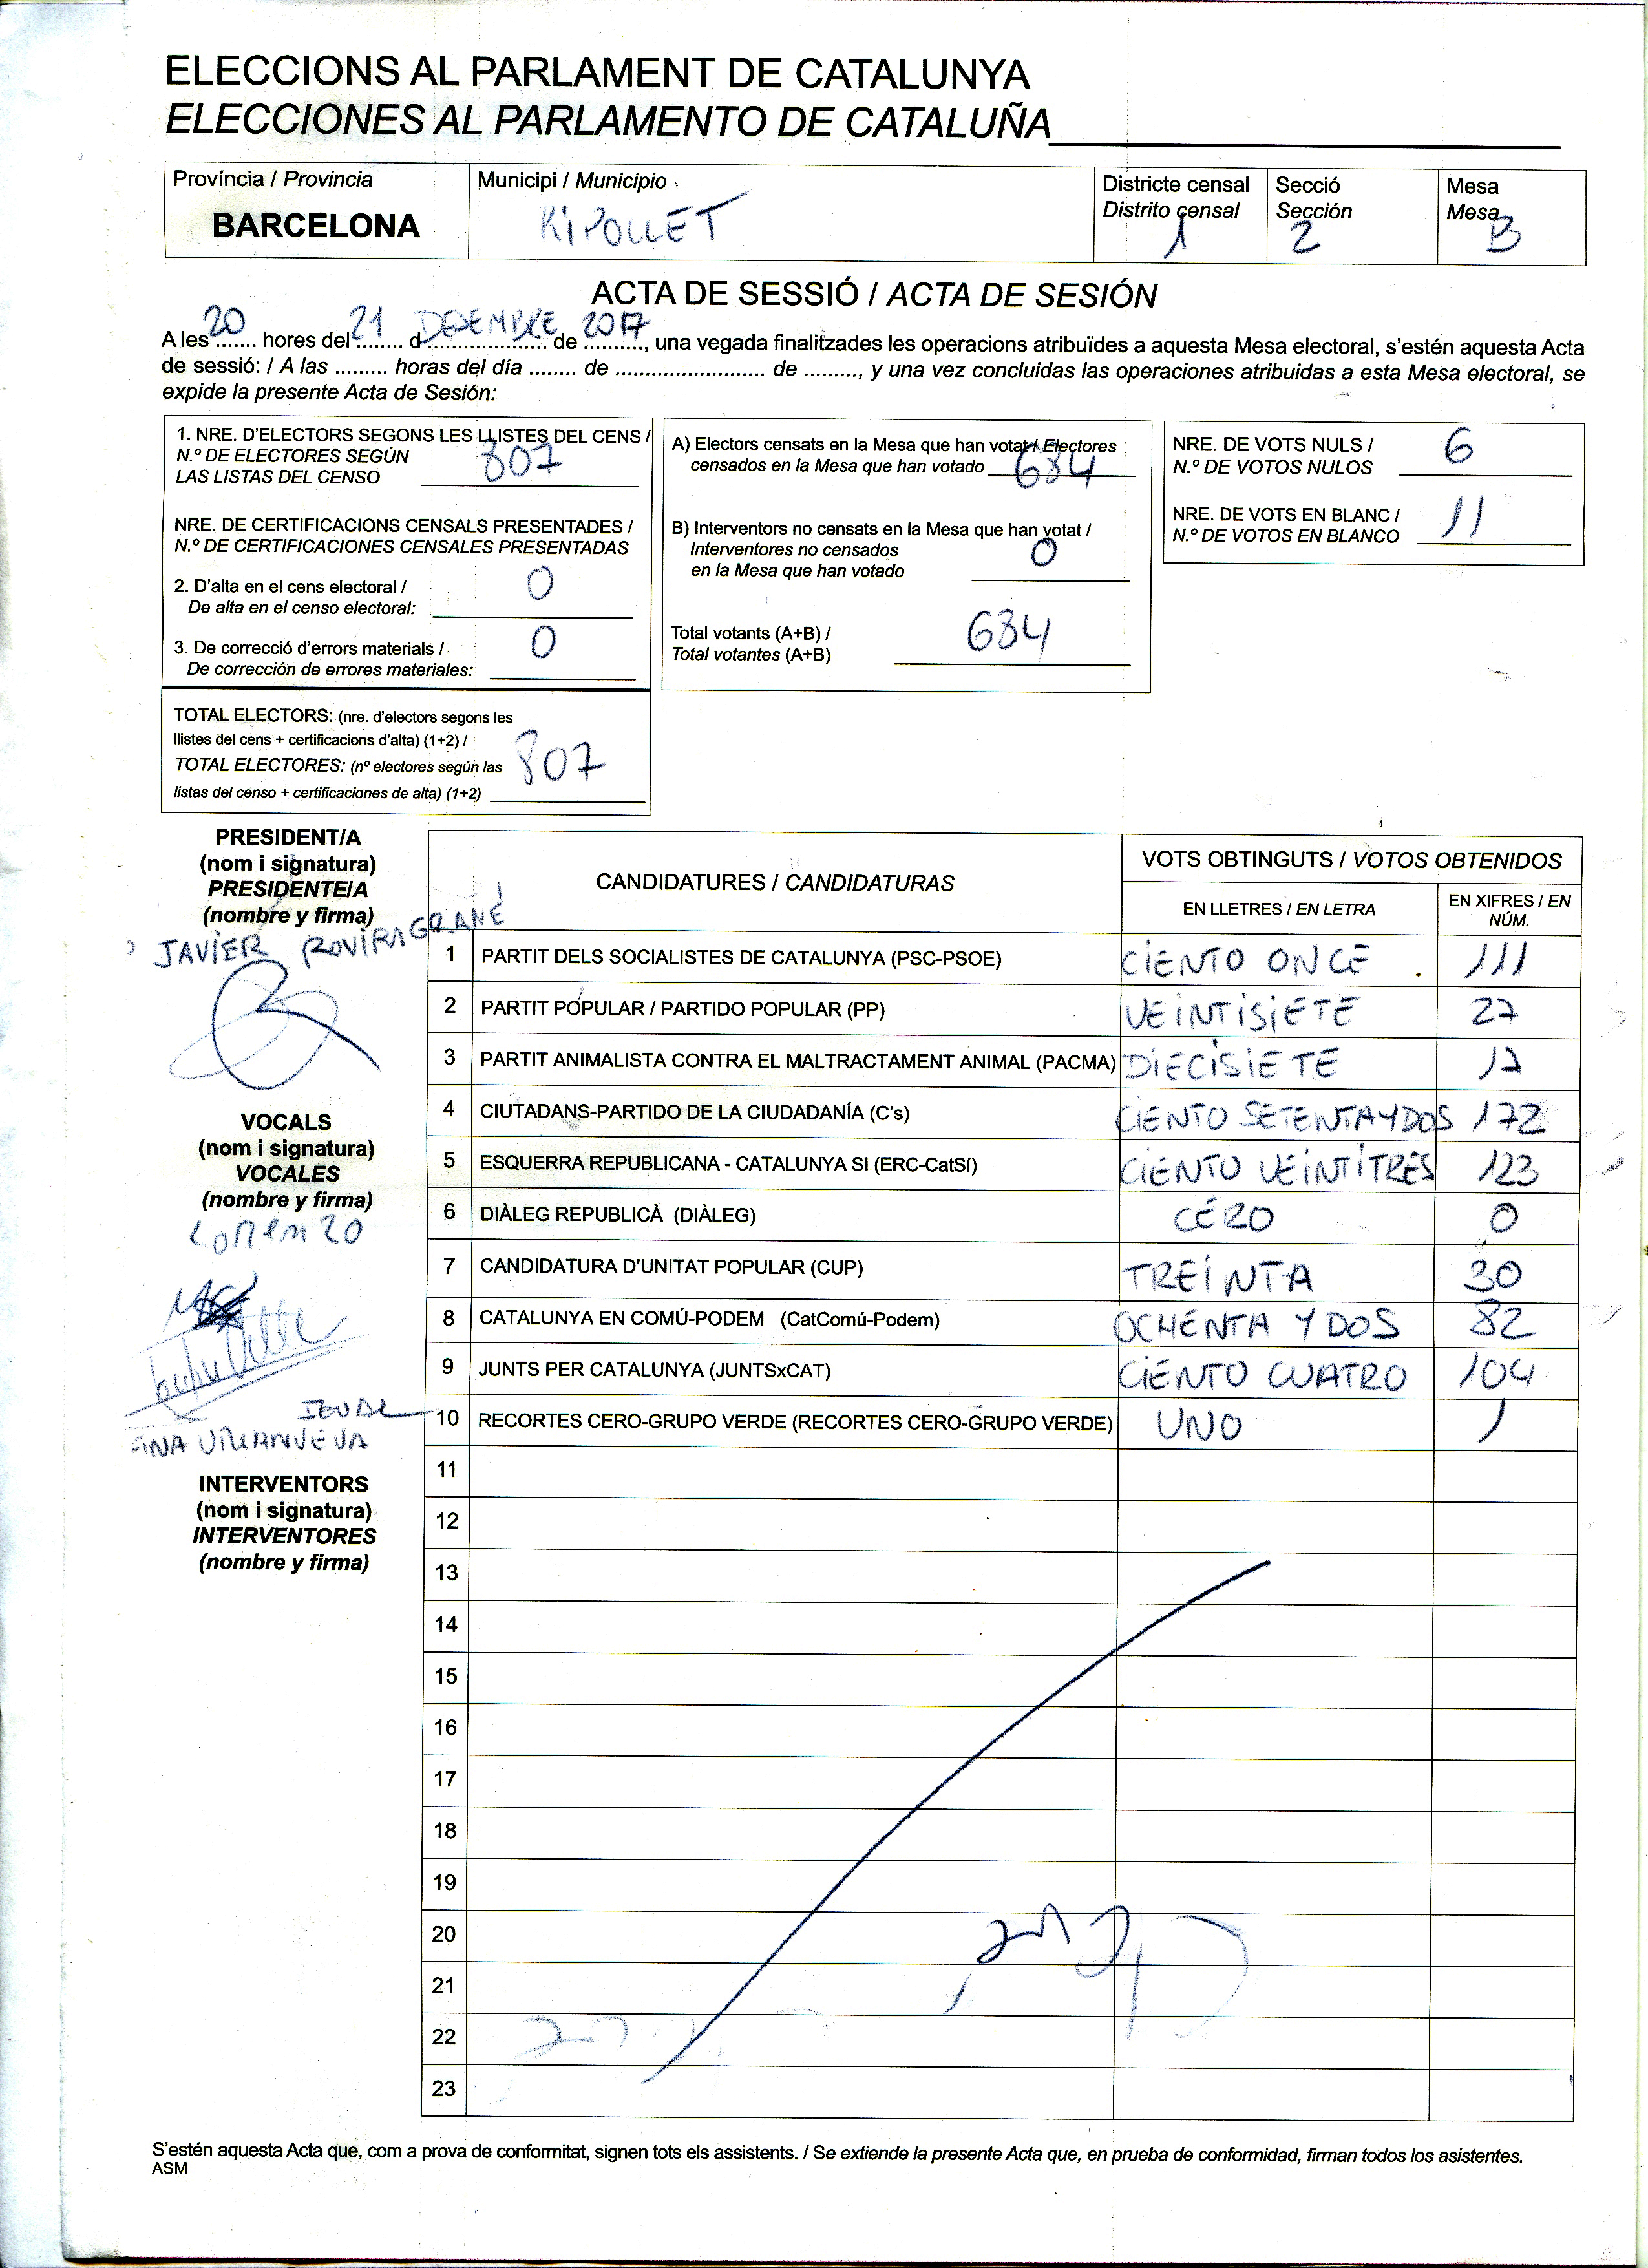 ELECCIONS AL PARLAMENT DE CATALUNYA
ELECCIONES AL PARLAMENTO DE CATALUÑA
Província / Provincia
BARCELONA
Municipi / Municipio
RIPOLLET
Districte censal
Distrito censal
1
Secció
Sección
2
Mesa
Mesa
B
ACTA DE SESSIÓ / ACTA DE SESIÓN
A les 20 hores del 21 d DESEMBRE de 2017, una vegada finalitzades les operacions atribuïdes a aquesta Mesa electoral, s'estén aquesta Acta
de sessió: / A las ......... horas del día ........ de ....................... de ........., y una vez concluidas las operaciones atribuidas a esta Mesa electoral, se
expide la presente Acta de Sesión:
1. NRE. D'ELECTORS SEGONS LES LLISTES DEL CENS /
N.º DE ELECTORES SEGÚN
LAS LISTAS DEL CENSO 807
NRE. DE CERTIFICACIONS CENSALS PRESENTADES /
N.º DE CERTIFICACIONES CENSALES PRESENTADAS
2. D'alta en el cens electoral /
De alta en el censo electoral: 0
3. De correcció d'errors materials /
De corrección de errores materiales: 0
TOTAL ELECTORS: (nre. d'electors segons les
llistes del cens + certificacions d'alta) (1+2) /
TOTAL ELECTORES: (nº electores según las
listas del censo + certificaciones de alta) (1+2) 807
A) Electors censats en la Mesa que han votat / Electores
censados en la Mesa que han votado 684
B) Interventors no censats en la Mesa que han votat /
Interventores no censados
en la Mesa que han votado 0
Total votants (A+B) /
Total votantes (A+B) 684
NRE. DE VOTS NULS /
N.º DE VOTOS NULOS 6
NRE. DE VOTS EN BLANC /
N.º DE VOTOS EN BLANCO 11
PRESIDENT/A
(nom i signatura)
PRESIDENTE/A
(nombre y firma)
JAVIER ROVIRA GRANÉ
VOCALS
(nom i signatura)
VOCALES
(nombre y firma)
Lorenzo
INTERVENTORS
(nom i signatura)
INTERVENTORES
(nombre y firma)
CANDIDATURES / CANDIDATURAS
VOTS OBTINGUTS / VOTOS OBTENIDOS
EN LLETRES / EN LETRA
EN XIFRES / EN
NÚM.
1 PARTIT DELS SOCIALISTES DE CATALUNYA (PSC-PSOE) CIENTO ONCE 111
2 PARTIT POPULAR / PARTIDO POPULAR (PP) VEINTISIETE 27
3 PARTIT ANIMALISTA CONTRA EL MALTRACTAMENT ANIMAL (PACMA) DIECISIETE 17
4 CIUTADANS-PARTIDO DE LA CIUDADANÍA (C's) CIENTO SETENTA Y DOS 172
5 ESQUERRA REPUBLICANA - CATALUNYA SI (ERC-CatSí) CIENTO VEINTITRES 123
6 DIÀLEG REPUBLICÀ (DIÀLEG) CERO 0
7 CANDIDATURA D'UNITAT POPULAR (CUP) TREINTA 30
8 CATALUNYA EN COMÚ-PODEM (CatComú-Podem) OCHENTA Y DOS 82
9 JUNTS PER CATALUNYA (JUNTSxCAT) CIENTO CUATRO 104
10 RECORTES CERO-GRUPO VERDE (RECORTES CERO-GRUPO VERDE) UNO 1
11
12
13
14
15
16
17
18
19
20
21
22
23
S'estén aquesta Acta que, com a prova de conformitat, signen tots els assistents. / Se extiende la presente Acta que, en prueba de conformidad, firman todos los asistentes.
ASM